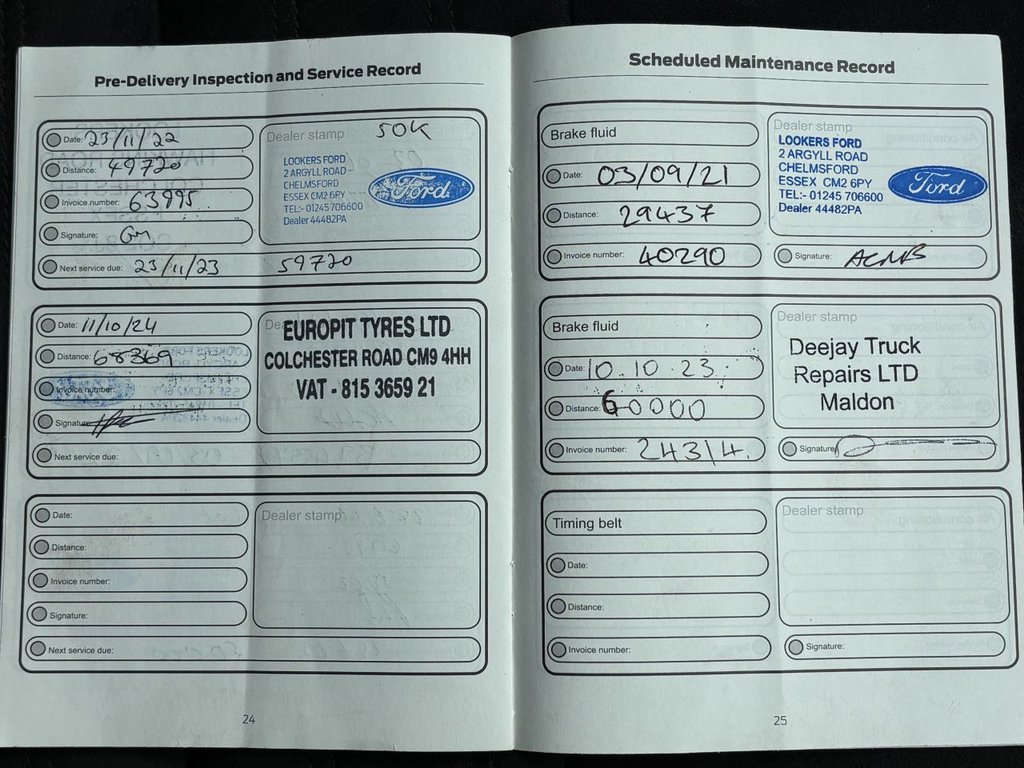 Pre-Delivery Inspection and Service Record
Date: 23/11/22
Distance: 49720
Invoice number: 63995
Signature:
Next service due: 23/11/23 59720
Dealer stamp 50K
LOOKERS FORD
2 ARGYLL ROAD
CHELMSFORD
ESSEX CM2 6PY
TEL:- 01245 706600
Dealer 44482PA
Ford
Date: 11/10/24
Distance: 68369
Invoice number:
Signature:
Next service due:
EUROPIT TYRES LTD
COLCHESTER ROAD CM9 4HH
VAT - 815 3659 21
Date:
Distance:
Invoice number:
Signature:
Next service due:
Dealer stamp
24
Scheduled Maintenance Record
Brake fluid
Date: 03/09/21
Distance: 29437
Invoice number: 40290
Dealer stamp
LOOKERS FORD
2 ARGYLL ROAD
CHELMSFORD
ESSEX CM2 6PY
TEL:- 01245 706600
Dealer 44482PA
Ford
Signature:
Brake fluid
Date: 10.10.23.
Distance: 60000
Invoice number: 24314.
Dealer stamp
Deejay Truck
Repairs LTD
Maldon
Signature:
Timing belt
Date:
Distance:
Invoice number:
Dealer stamp
Signature:
25